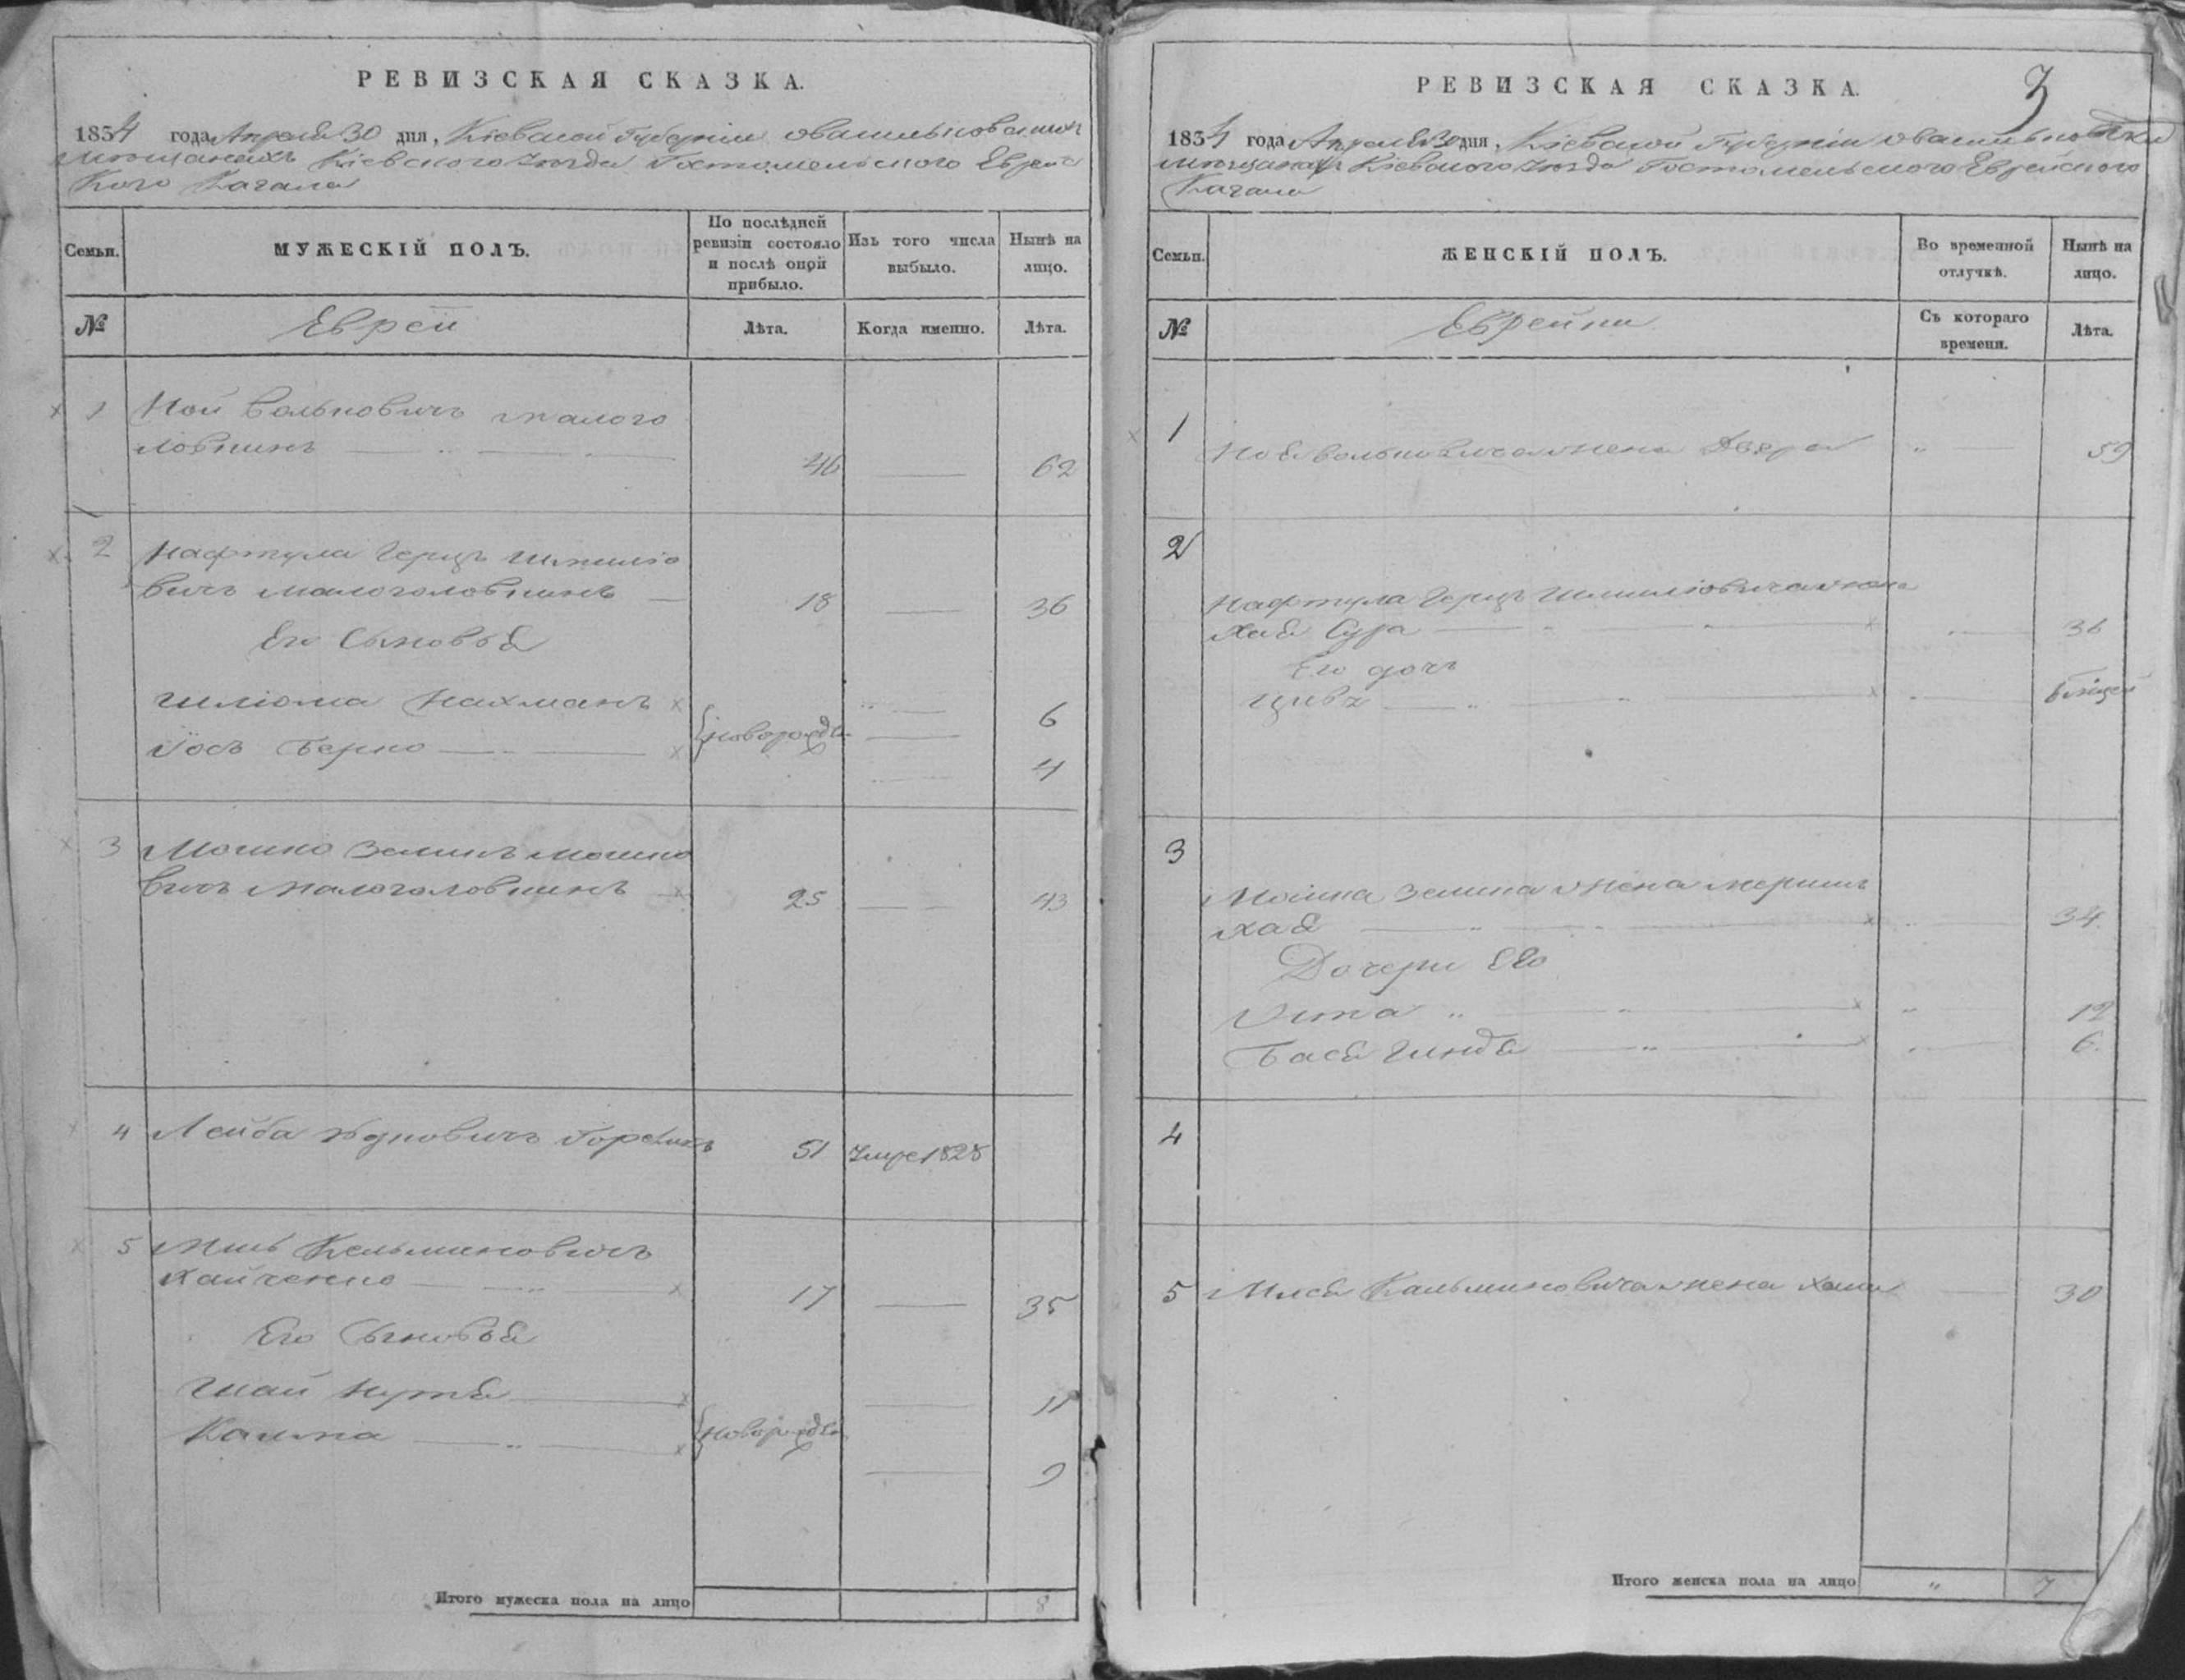 РЕВИЗСКАЯ СКАЗКА.
1834 года Апреля 30 дня, Кіевской Губерніи о Васильковскихъ
мѣщанехъ Кіевского уѣзда Гостомельского Еврейс
кого Кагала
Семьи.
МУЖЕСКІЙ ПОЛЪ.
По послѣдней ревизіи состояло и послѣ оной прибыло.
Изъ того числа выбыло.
Нынѣ на лицо.
№
Евреи
Лѣта.
Когда именно.
Лѣта.
1 Ной Вольковичъ Малого
ловчинъ 46 62
2 Нафтула Герцъ Шмиліо
вичъ Малоголовчинъ 18 36
Его Сыновья
Шліома Нахманъ 6
Іосъ Берко новорожде 4
3 Мошко Зеликъ Мошко
вичъ Малоголовчинъ 25 43
4 Лейба Горе 51 Умре 1828
5 Кельмановичъ
Хайченко 17 35
Его Сыновья
Шай Нута 11
новорожде 9
Итого мужеска пола на лицо 8
РЕВИЗСКАЯ СКАЗКА.
3
1834 года Апреля 30 дня, Кіевской Губерніи о
мѣщанахъ Кіевского уѣзда Гостомельского Еврейского
Кагала
Семьи.
ЖЕНСКІЙ ПОЛЪ.
Во временной отлучкѣ.
Нынѣ на лицо.
№
Еврейки
Съ котораго времени.
Лѣта.
1
Ноя Вольковича жена Двера 59
2
Нафтула Герцъ Шмиліовича жена
Хая Сура 36
Его дочь
Цивя
3
Мошка Зелика жена
Хая 34
Дочери Его
12
Бася Гиндя 6
4
5 Кальмановича жена 30
Итого женска пола на лицо " 7